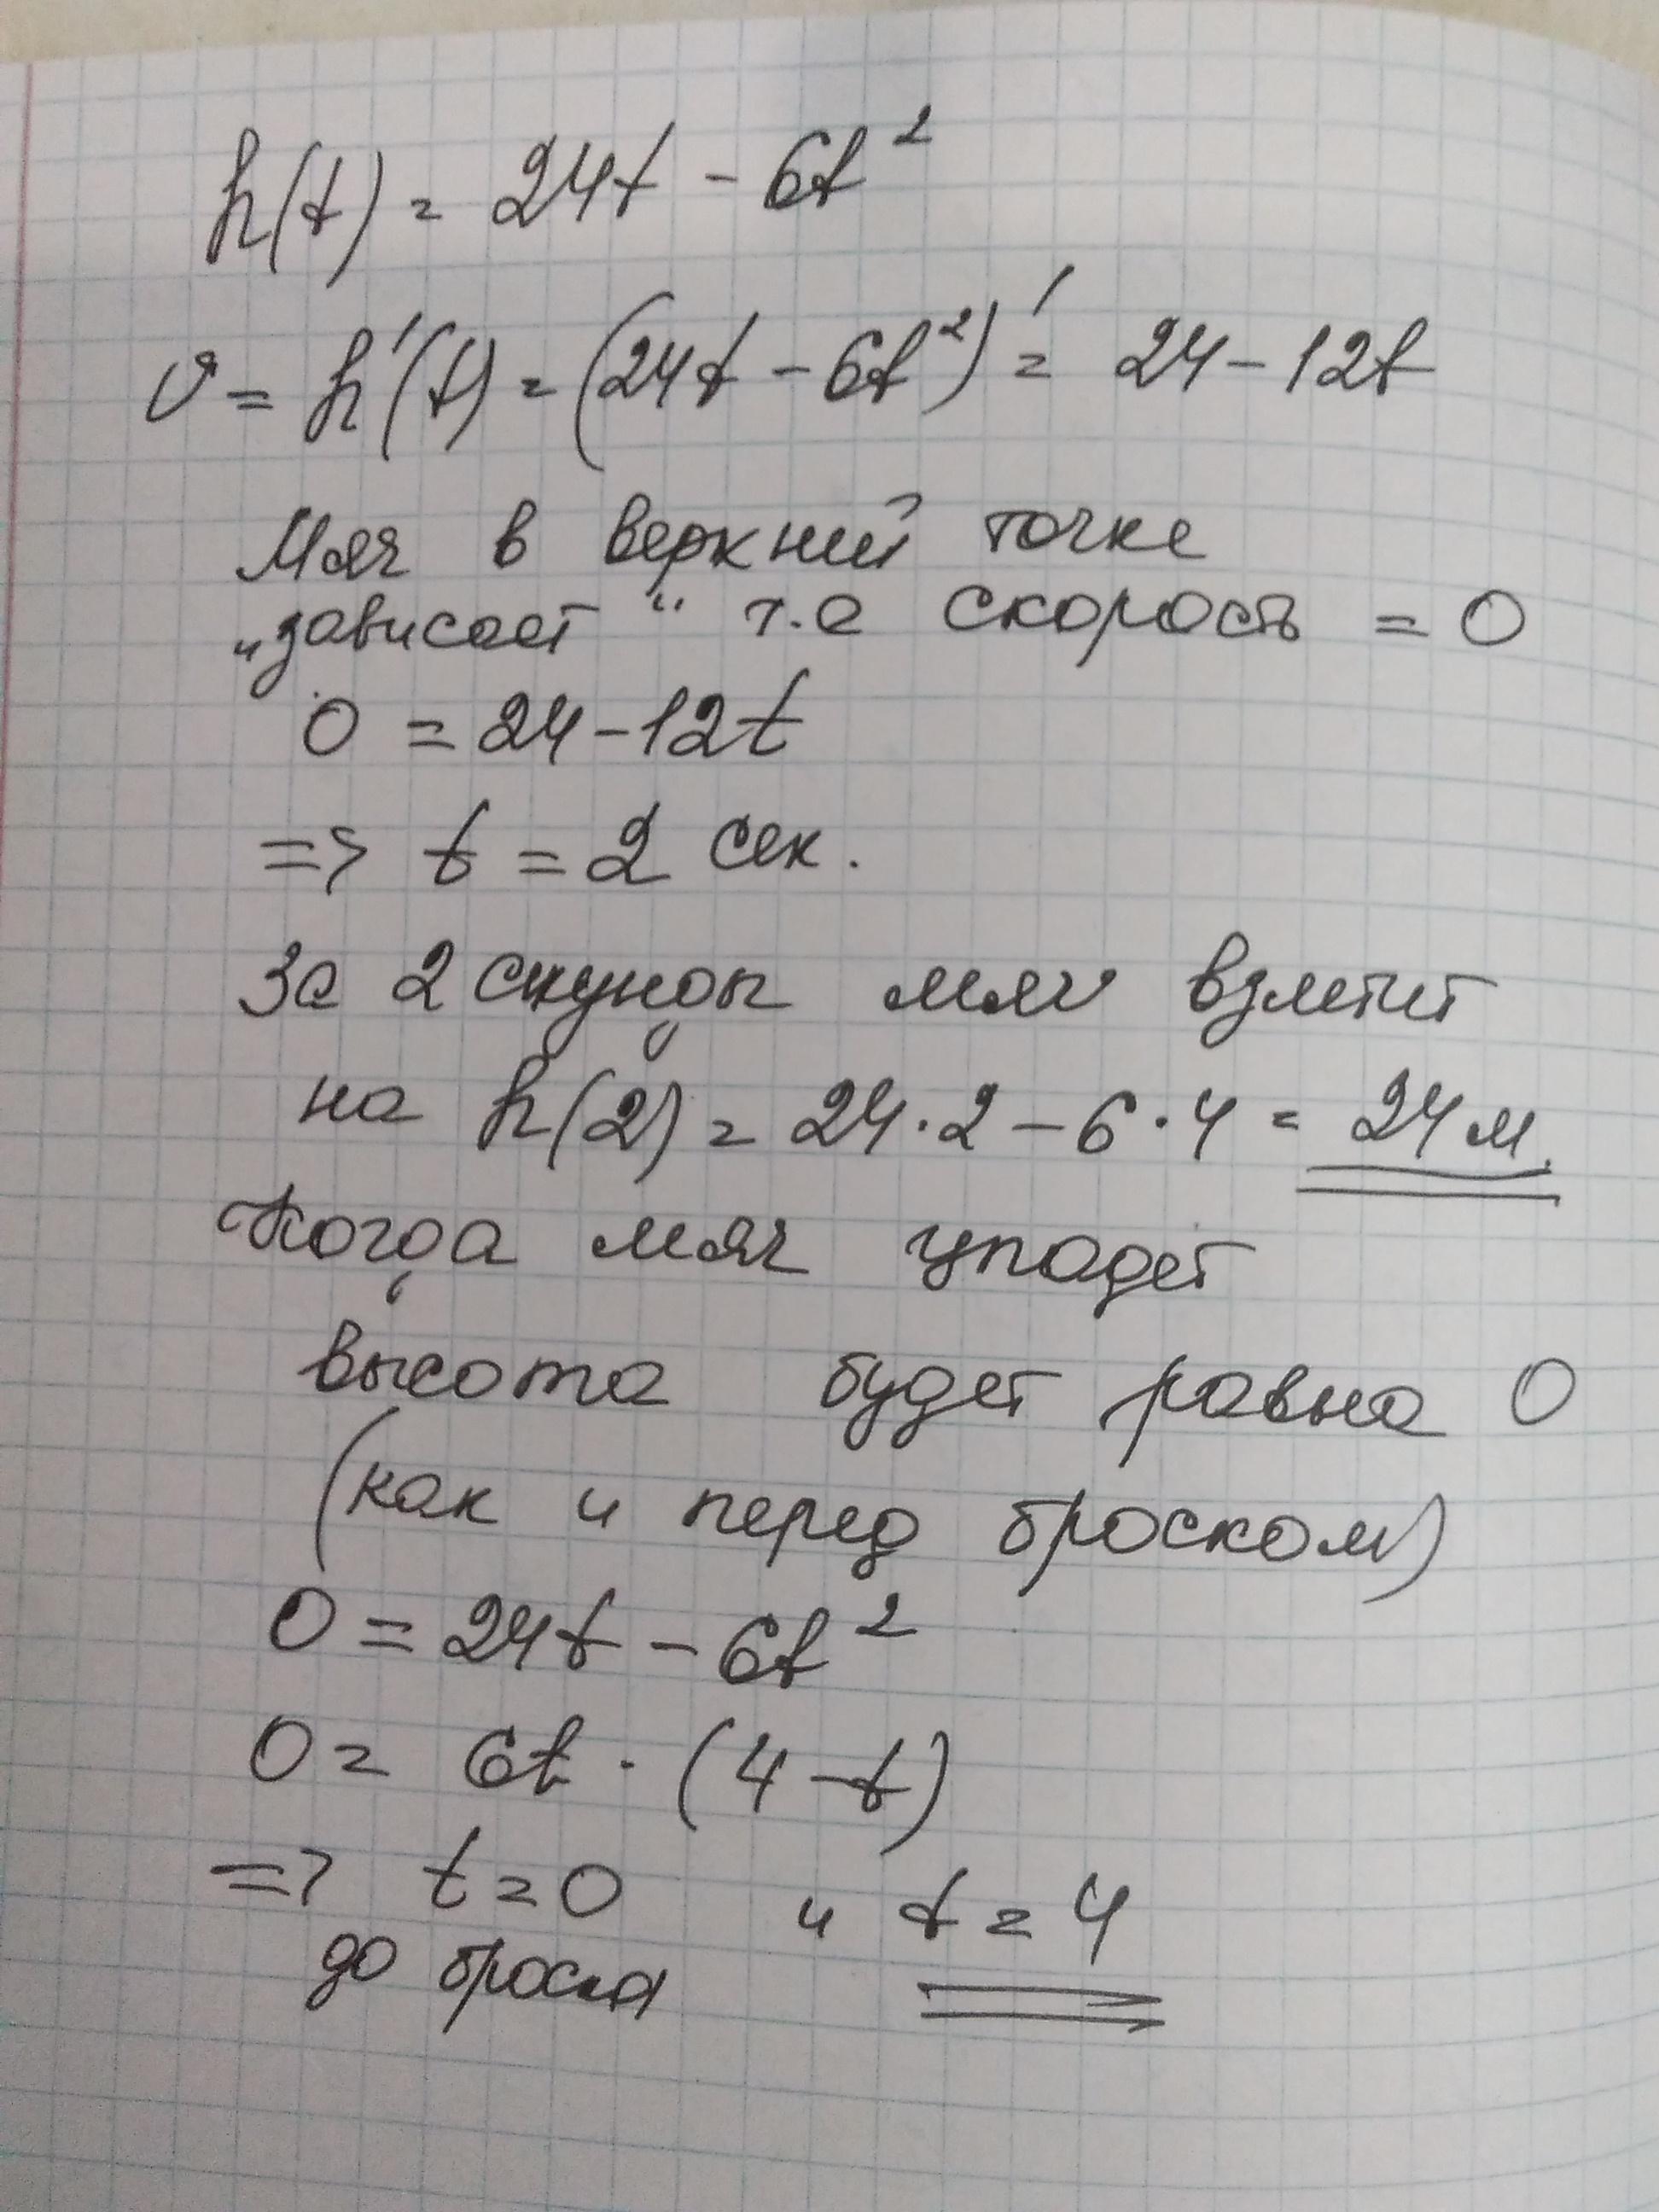 h(t) = 24t - 6t²
v = h'(t) = (24t - 6t²)' = 24 - 12t
Мяч в верхний точке
„зависает“ т.е скорость = 0
0 = 24 - 12t
=> t = 2 сек.
За 2 секунды мяч взлетит
на h(2) = 24·2 - 6·4 = 24 м.
Когда мяч упадет
высота будет равна 0
(как и перед броском)
0 = 24t - 6t²
0 = 6t · (4 - t)
=> t = 0 и t = 4
до броска